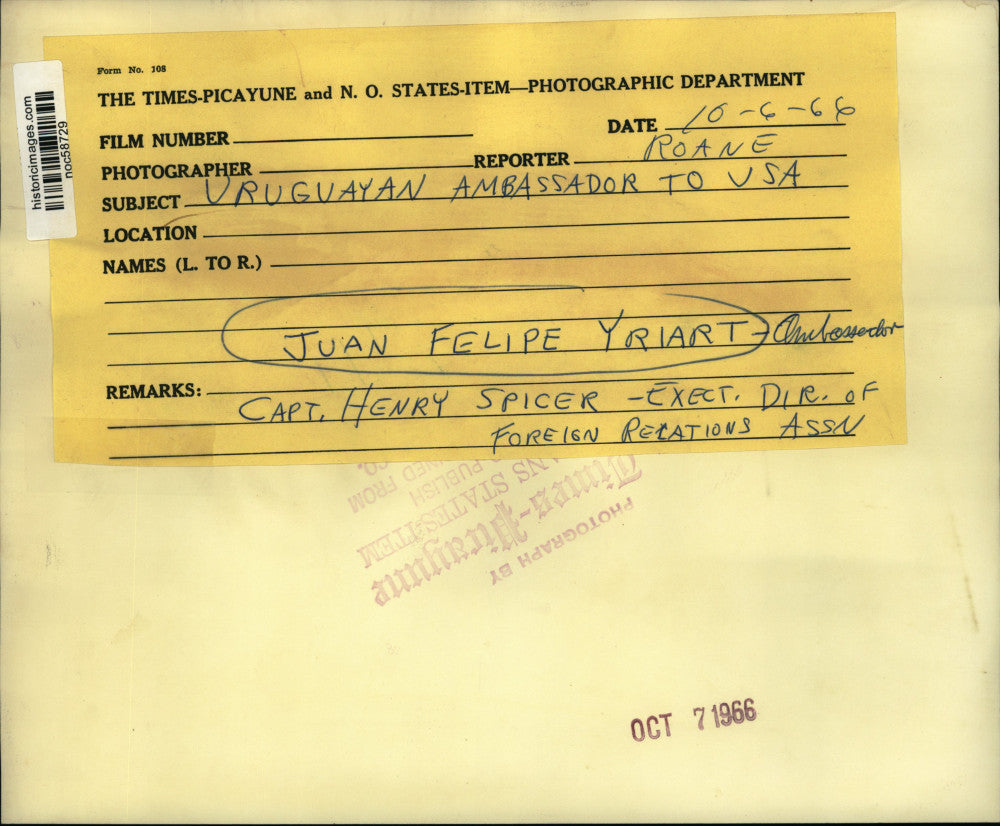 Form No. 108
THE TIMES-PICAYUNE and N. O. STATES-ITEM—PHOTOGRAPHIC DEPARTMENT
FILM NUMBER
DATE 10-6-66
PHOTOGRAPHER REPORTER ROANE
SUBJECT URUGUAYAN AMBASSADOR TO USA
LOCATION
NAMES (L. TO R.)
JUAN FELIPE YRIART - Ambassador
REMARKS:
CAPT. HENRY SPICER - EXECT. DIR. OF
FOREIGN RELATIONS ASSN
historicimages.com
noc58729
PHOTOGRAPH BY
Times-Picayune
ANS STATES-ITEM
PUBLISH
NED FROM
CO.
OCT 7 1966